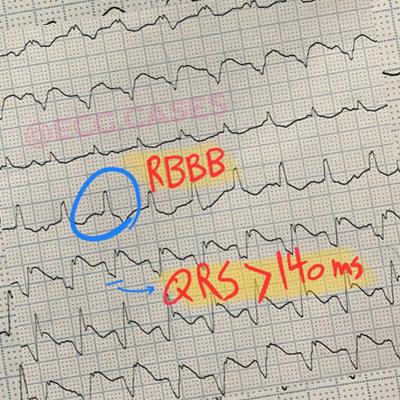 @ECG CASES
RBBB
QRS > 140 ms